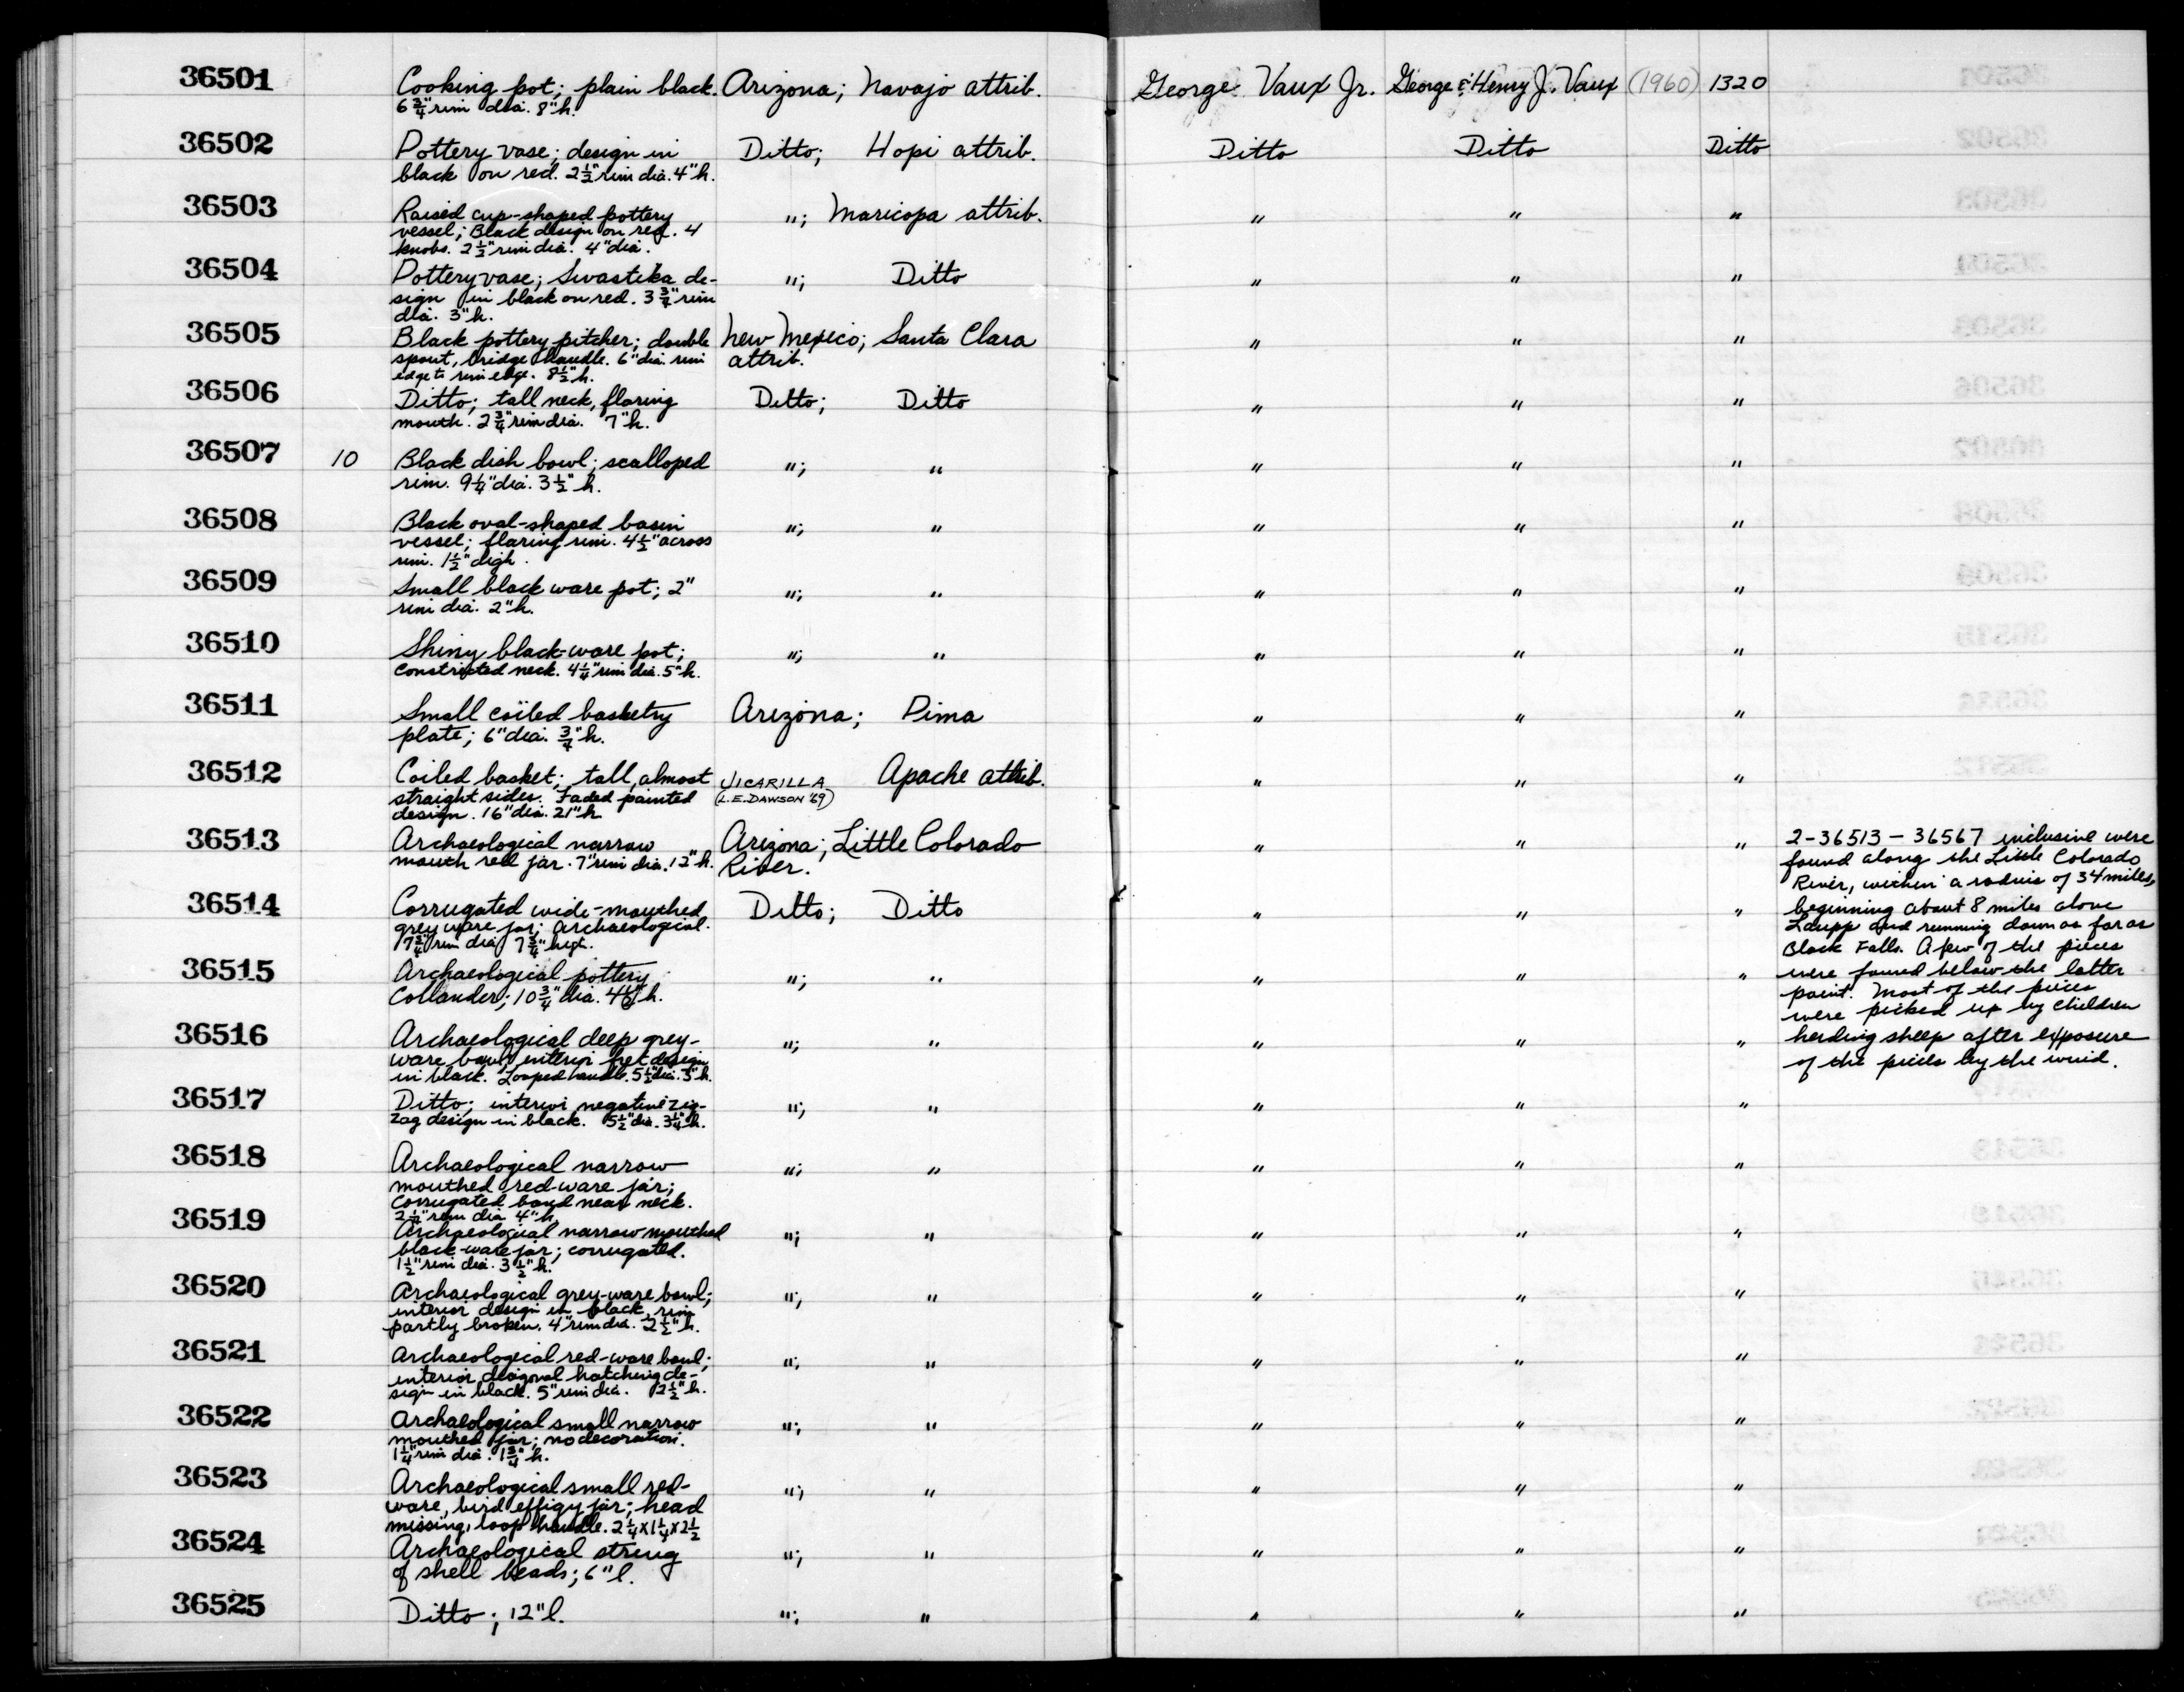 36501 Cooking pot; plain black. Arizona; Navajo attrib. George Vaux Jr. George & Henry J. Vaux (1960) 1320
6 3/4" rim dia. 8" h.
36502 Pottery vase; design in Ditto; Hopi attrib. Ditto Ditto Ditto
black on red. 2 1/2" rim dia. 4" h.
36503 Raised cup-shaped pottery "; Maricopa attrib. " " "
vessel; Black design on red. 4
knobs. 2 1/2" rim dia. 4" dia.
36504 Pottery vase; Swastika de- "; Ditto " " "
sign in black on red. 3 3/4" rim
dia. 3" h.
36505 Black pottery pitcher; double New Mexico; Santa Clara " " "
spout, bridge handle. 6" dia. rim attrib.
edge to rim edge. 8 1/2" h.
36506 Ditto; tall neck, flaring Ditto; Ditto " " "
mouth. 2 3/4" rim dia. 7" h.
36507 10 Black dish bowl; scalloped "; " " " "
rim. 9 1/4" dia. 3 1/2" h.
36508 Black oval-shaped basin "; " " " "
vessel; flaring rim. 4 1/2" across
rim. 1 1/2" digh.
36509 Small black ware pot; 2" "; " " " "
rim dia. 2" h.
36510 Shiny black-ware pot; "; " " " "
constricted neck. 4 1/4" rim dia. 5" h.
36511 Small coiled basketry Arizona; Pima " " "
plate; 6" dia. 3/4" h.
36512 Coiled basket; tall, almost JICARILLA Apache attrib. " " "
straight sides. Faded painted (L.E. DAWSON '69)
design. 16" dia. 21" h.
36513 Archaeological narrow Arizona; Little Colorado " " " 2-36513-36567 inclusive were
mouth red jar. 7" rim dia. 12" h. River. found along the Little Colorado
River, within a radius of 34 miles,
36514 Corrugated wide-mouthed Ditto; Ditto " " " beginning about 8 miles above
grey ware jar; archaeological. Leupp and running down as far as
7 3/4" rim dia 7 3/4" hgt. Black Falls. A few of the pieces
36515 Archaeological pottery "; " " " " were found below the latter
Collander; 10 3/4" dia. h. point. Most of the pieces
were picked up by children
36516 Archaeological deep grey- "; " " " " herding sheep after exposure
ware bowl; interior fret design of the pieces by the wind.
in black. Looped handle. 5 1/2" dia. 3" h.
36517 Ditto; interior negative zig- "; " " " "
zag design in black. 5 1/2" dia. 3 1/4" h.
36518 Archaeological narrow "; " " " "
mouthed red-ware jar;
corrugated band near neck.
2 1/2" rim dia 4" h.
36519 Archaeological narrow mouthed "; " " " "
black-ware jar; corrugated.
1 1/2" rim dia. 3 1/2" h.
36520 Archaeological grey-ware bowl; "; " " " "
interior design in black, rim
partly broken. 4" rim dia. 2 1/2" h.
36521 Archaeological red-ware bowl; "; " " " "
interior diagonal hatching de-
sign in black. 5" rim dia. 2 1/2" h.
36522 Archaeological small narrow "; " " " "
mouthed jar; no decoration.
1 1/4" rim dia. 1 3/4" h.
36523 Archaeological small red- "; " " " "
ware, bird effigy jar; head
missing, loop handle. 2 1/4 x 1 1/4 x 2 1/2
36524 Archaeological string "; " " " "
of shell beads; 6" l.
36525 Ditto; 12" l. "; " " " "